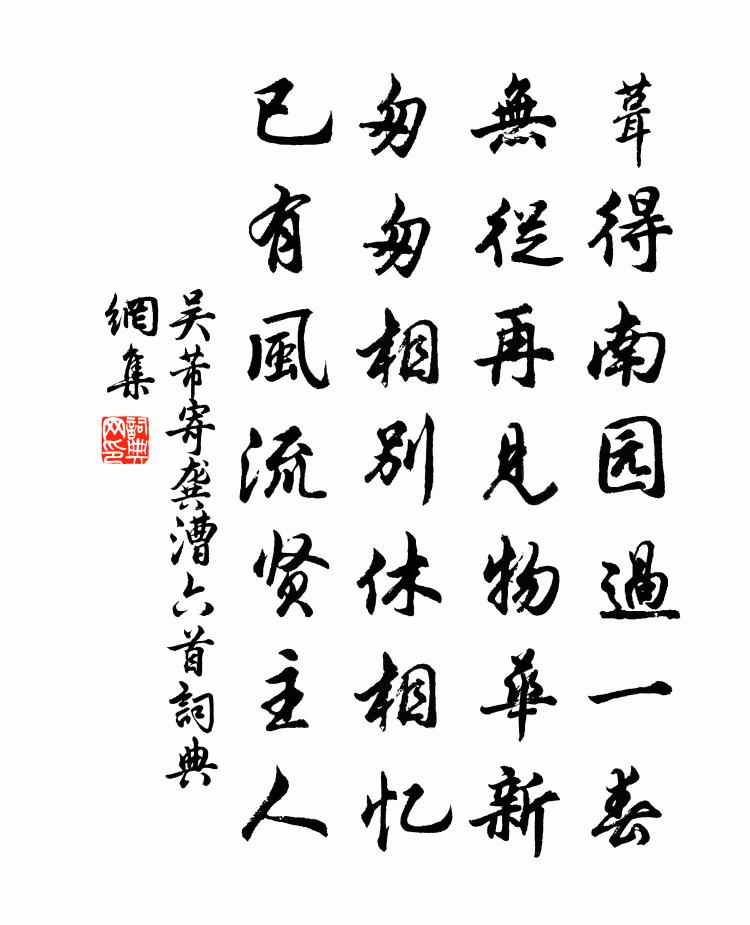 葺得南园過一春
無從再見物華新
匆匆相別休相忆
已有風流贤主人
吴芾寄龚漕六首詞典
網集
詞典網印